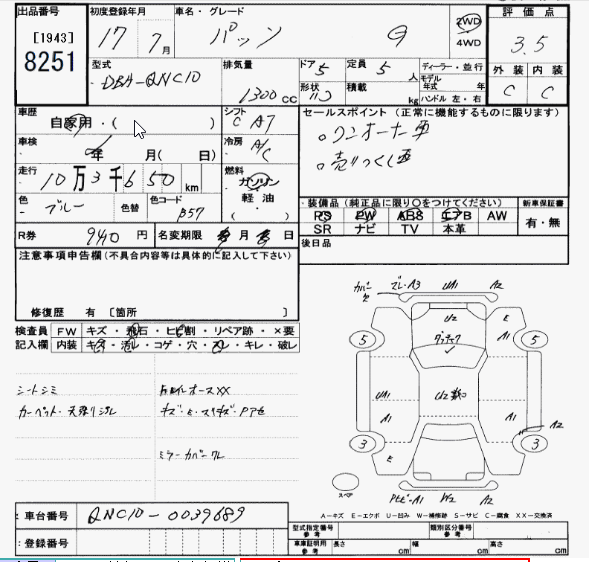 出品番号 初度登録年月 車名・グレード 評価点
[1943]
8251
17 7月 パッソ G 2WD 4WD 3.5
型式 排気量 ドア 定員 ディーラー・並行 外装 内装
DBA-QNC10 1300cc 5 5人 モデル年式 年 C C
形状 積載 kg ハンドル 左・右
車歴 自家用・( ) シフト C A7 セールスポイント (正常に機能するものに限ります)
車検 年 月( 日) 冷房 A/C ○ワンオーナー車
走行 10万3千650km 燃料 ガソリン 軽油 ・( ) ○売りつくし車
色 ブルー 色替 色コード B57 ・装備品(純正品に限り○をつけてください) 新車保証書
PS PW ABS エアB AW 有・無
SR ナビ TV 本革
R券 9410円 名変期限 月 日 後日品
注意事項申告欄(不具合内容等は具体的に記入して下さい)
修復歴 有 [箇所 ]
検査員 FW キズ・飛石・ヒビ割・リペア跡・×要
記入欄 内装 キズ・汚レ・コゲ・穴・スレ・キレ・破レ
シートシミ
カーペット・天張リヨゴレ
キズ・E・スリキズ・Pアセ
ミラーカバーワレ
A3 UA1 A2
U2 E
A1
5 5
UA1 U2
A1 A1 A2
3 3
E
スペア A1 W2 A2
A-キズ E-エクボ U-凹み W-補修跡 S-サビ C-腐食 XX-交換済
:車台番号 QNC10-0039689
:登録番号
型式指定番号 参考 類別区分番号 参考
車庫証明用 参考 長さ cm 幅 cm 高さ cm